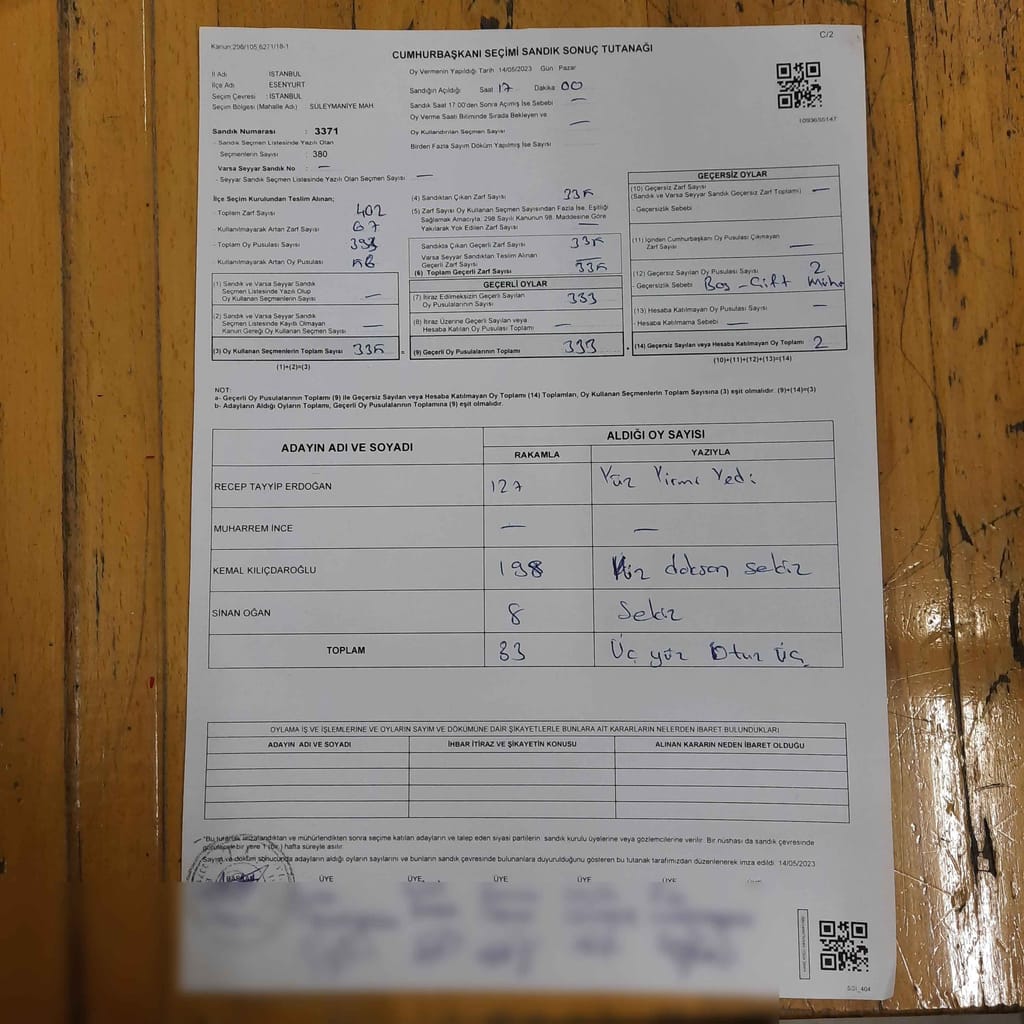 Kanun:298/105,6271/18-1
C/2
CUMHURBAŞKANI SEÇİMİ SANDIK SONUÇ TUTANAĞI
İl Adı : İSTANBUL
İlçe Adı : ESENYURT
Seçim Çevresi : İSTANBUL
Seçim Bölgesi (Mahalle Adı) : SÜLEYMANİYE MAH.
Sandık Numarası : 3371
- Sandık Seçmen Listesinde Yazılı Olan
Seçmenlerin Sayısı : 380
Varsa Seyyar Sandık No : —
- Seyyar Sandık Seçmen Listesinde Yazılı Olan Seçmen Sayısı : —
Oy Vermenin Yapıldığı Tarih :14/05/2023 Gün : Pazar
Sandığın Açıldığı Saat 17 Dakika 00
Sandık Saat 17:00'den Sonra Açımış İse Sebebi —
Oy Verme Saati Bitiminde Sırada Bekleyen ve
Oy Kullandırılan Seçmen Sayısı —
Birden Fazla Sayım Döküm Yapılmış İse Sayısı
1093656147
İlçe Seçim Kurulundan Teslim Alınan;
- Toplam Zarf Sayısı 402
- Kullanılmayarak Artan Zarf Sayısı 67
- Toplam Oy Pusulası Sayısı
- Kullanılmayarak Artan Oy Pusulası
(1) Sandık ve Varsa Seyyar Sandık
Seçmen Listesinde Yazılı Olup
Oy Kullanan Seçmenlerin Sayısı —
(2) Sandık ve Varsa Seyyar Sandık
Seçmen Listesinde Kayıtlı Olmayan
Kanun Gereği Oy Kullanan Seçmen Sayısı —
(3) Oy Kullanan Seçmenlerin Toplam Sayısı 335 =
(1)+(2)=(3)
(4) Sandıktan Çıkan Zarf Sayısı 335
(5) Zarf Sayısı Oy Kullanan Seçmen Sayısından Fazla İse; Eşitliği
Sağlamak Amacıyla, 298 Sayılı Kanunun 98. Maddesine Göre
Yakılarak Yok Edilen Zarf Sayısı —
Sandıkta Çıkan Geçerli Zarf Sayısı 335
Varsa Seyyar Sandıktan Teslim Alınan
Geçerli Zarf Sayısı —
(6) Toplam Geçerli Zarf Sayısı 335
GEÇERLİ OYLAR
(7) İtiraz Edilmeksizin Geçerli Sayılan
Oy Pusulalarının Sayısı 333
(8) İtiraz Üzerine Geçerli Sayılan veya
Hesaba Katılan Oy Pusulası Toplamı —
(9) Geçerli Oy Pusulalarının Toplamı 333 +
GEÇERSİZ OYLAR
(10) Geçersiz Zarf Sayısı
(Sandık ve Varsa Seyyar Sandık Geçersiz Zarf Toplamı) —
- Geçersizlik Sebebi
(11) İçinden Cumhurbaşkanı Oy Pusulası Çıkmayan
Zarf Sayısı —
(12) Geçersiz Sayılan Oy Pusulası Sayısı 2
- Geçersizlik Sebebi Boş - Çift Mühür
(13) Hesaba Katılmayan Oy Pusulası Sayısı —
- Hesaba Katılmama Sebebi —
(14) Geçersiz Sayılan veya Hesaba Katılmayan Oy Toplamı 2
(10)+(11)+(12)+(13)=(14)
NOT:
a- Geçerli Oy Pusulalarının Toplamı (9) ile Geçersiz Sayılan veya Hesaba Katılmayan Oy Toplamı (14) Toplamları, Oy Kullanan Seçmenlerin Toplam Sayısına (3) eşit olmalıdır. (9)+(14)=(3)
b- Adayların Aldığı Oyların Toplamı, Geçerli Oy Pusulalarının Toplamına (9) eşit olmalıdır.
ADAYIN ADI VE SOYADI ALDIĞI OY SAYISI
RAKAMLA YAZIYLA
RECEP TAYYİP ERDOĞAN 127 Yüz Yirmi Yedi
MUHARREM İNCE — —
KEMAL KILIÇDAROĞLU 198 Yüz doksan sekiz
SİNAN OĞAN 8 Sekiz
TOPLAM 33 Üç yüz Otuz Üç
OYLAMA İŞ VE İŞLEMLERİNE VE OYLARIN SAYIM VE DÖKÜMÜNE DAİR ŞİKAYETLERLE BUNLARA AİT KARARLARIN NELERDEN İBARET BULUNDUKLARI
ADAYIN ADI VE SOYADI İHBAR İTİRAZ VE ŞİKAYETİN KONUSU ALINAN KARARIN NEDEN İBARET OLDUĞU
*Bu tutanak imzalandıktan ve mühürlendikten sonra seçime katılan adayların ve talep eden siyasi partilerin, sandık kurulu üyelerine veya gözlemcilerine verilir. Bir nüshası da sandık çevresinde
görülebilir bir yere 1 (bir ) hafta süreyle asılır.
Sayım ve döküm sonucunda adayların aldığı oyların sayılarını ve bunların sandık çevresinde bulunanlara duyurulduğunu gösteren bu tutanak tarafımızdan düzenlenerek imza edildi. 14/05/2023
BAŞKAN ÜYE ÜYE ÜYE ÜYE ÜYE ÜYE
SGİ_404